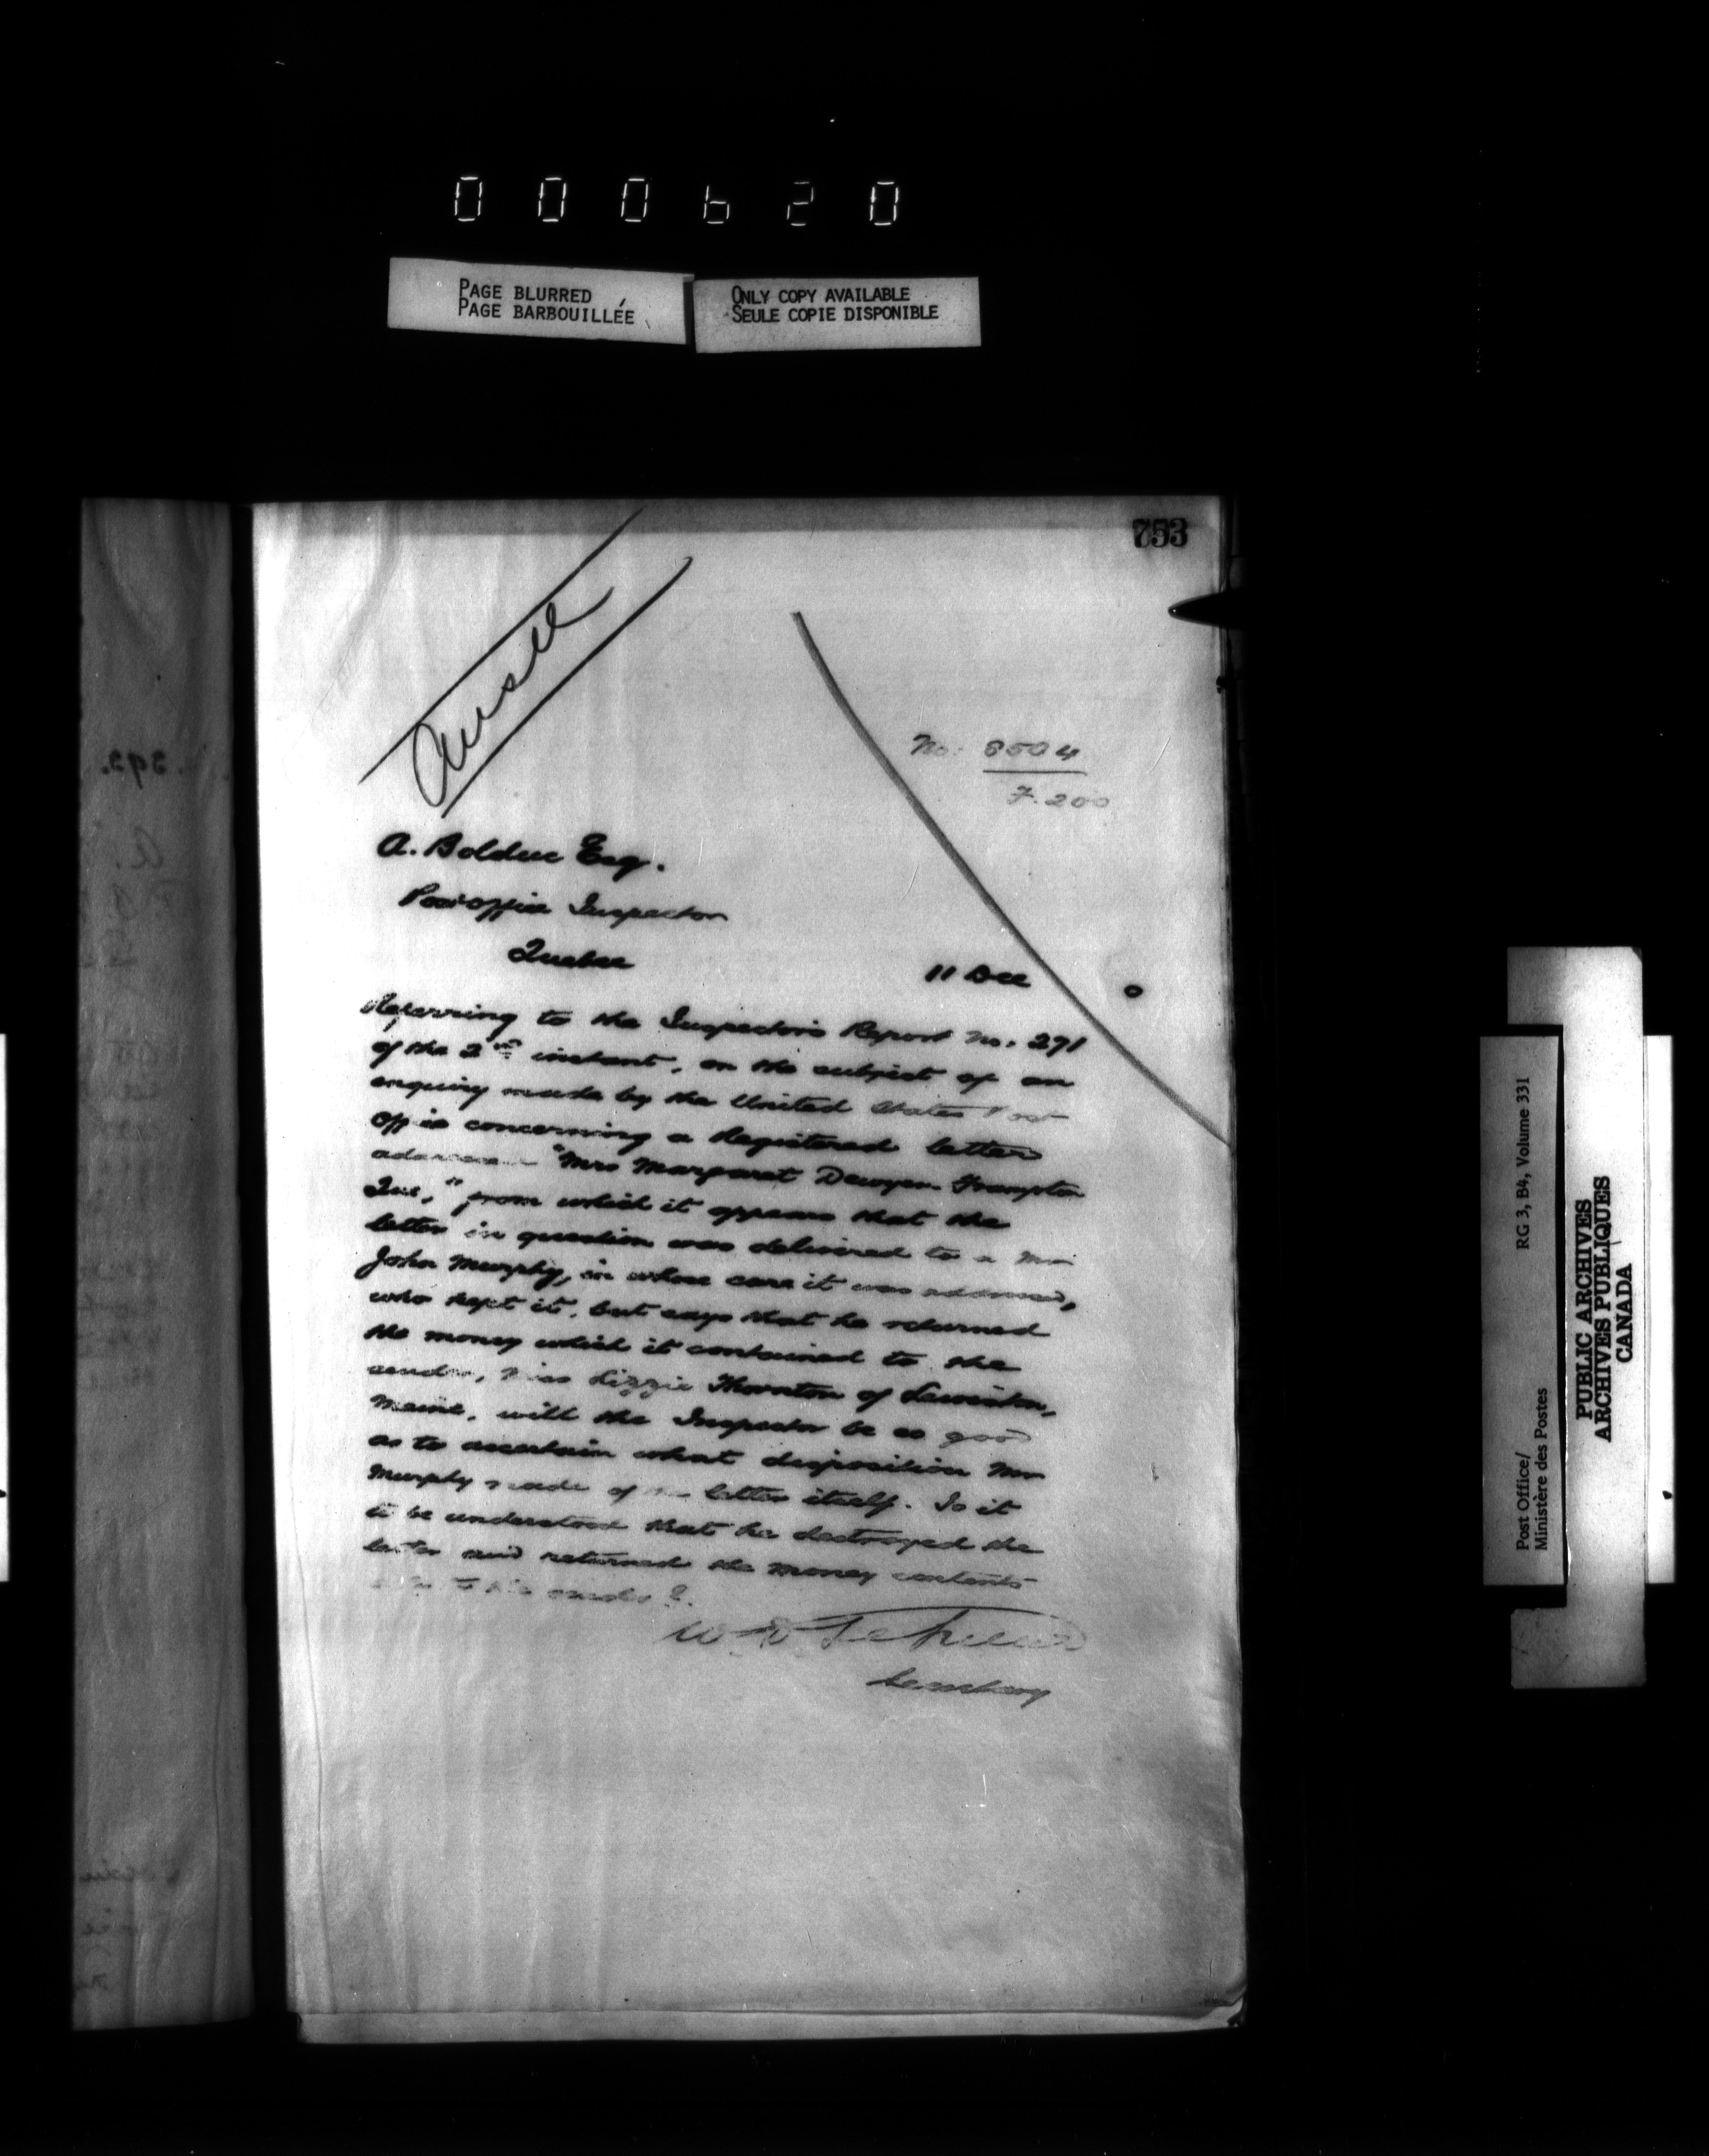 000620
PAGE BLURRED
PAGE BARBOUILLÉE
ONLY COPY AVAILABLE
SEULE COPIE DISPONIBLE
753
No. 8504
F. 200
A. Bolduc Esq.
Post Office Inspector
Quebec
11 Dec
Referring to the Inspector's Report No. 271
of the 2nd instant, on the subject of an
enquiry made by the United States Post
Office concerning a Registered letter
addressed "Mrs Margaret Dwyer Frampton
Que," from which it appears that the
letter in question was delivered to a Mr
John Murphy, in whose care it was addressed,
who kept it, but says that he returned
the money which it contained to the
sender, Miss Lizzie Thornton of Lewiston,
Maine, will the Inspector be so good
as to ascertain what disposition Mr
Murphy made of the letter itself. Is it
to be understood that he destroyed the
letter and returned the money contents
to the sender?
Secretary
RG 3, B4, Volume 331
Post Office/
Ministère des Postes
PUBLIC ARCHIVES
ARCHIVES PUBLIQUES
CANADA